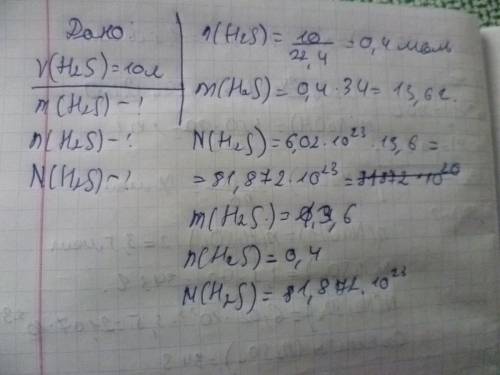 Дано:
V(H₂S)=10л
m(H₂S)-?
n(H₂S)-?
N(H₂S)-?
n(H₂S)= 10/22,4 =0,4 моль
m(H₂S)=0,4·34=13,6г.
N(H₂S)=6,02·10²³·13,6=
=81,872·10²³=
m(H₂S)= 13,6
n(H₂S)=0,4
N(H₂S)=81,872·10²³